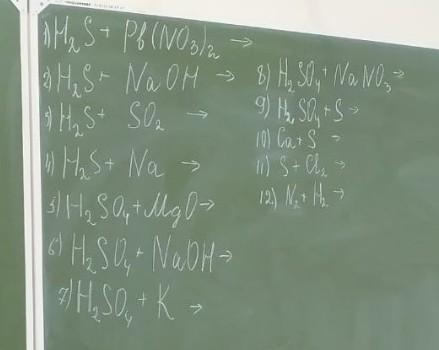 1) H₂S + Pb(NO₃)₂ →
2) H₂S + NaOH →
3) H₂S + SO₂ →
4) H₂S + Na →
5) H₂SO₄ + MgO →
6) H₂SO₄ + NaOH →
7) H₂SO₄ + K →
8) H₂SO₄ + NaNO₃ →
9) H₂SO₄ + S →
10) Ca + S →
11) S + Cl₂ →
12) N₂ + H₂ →